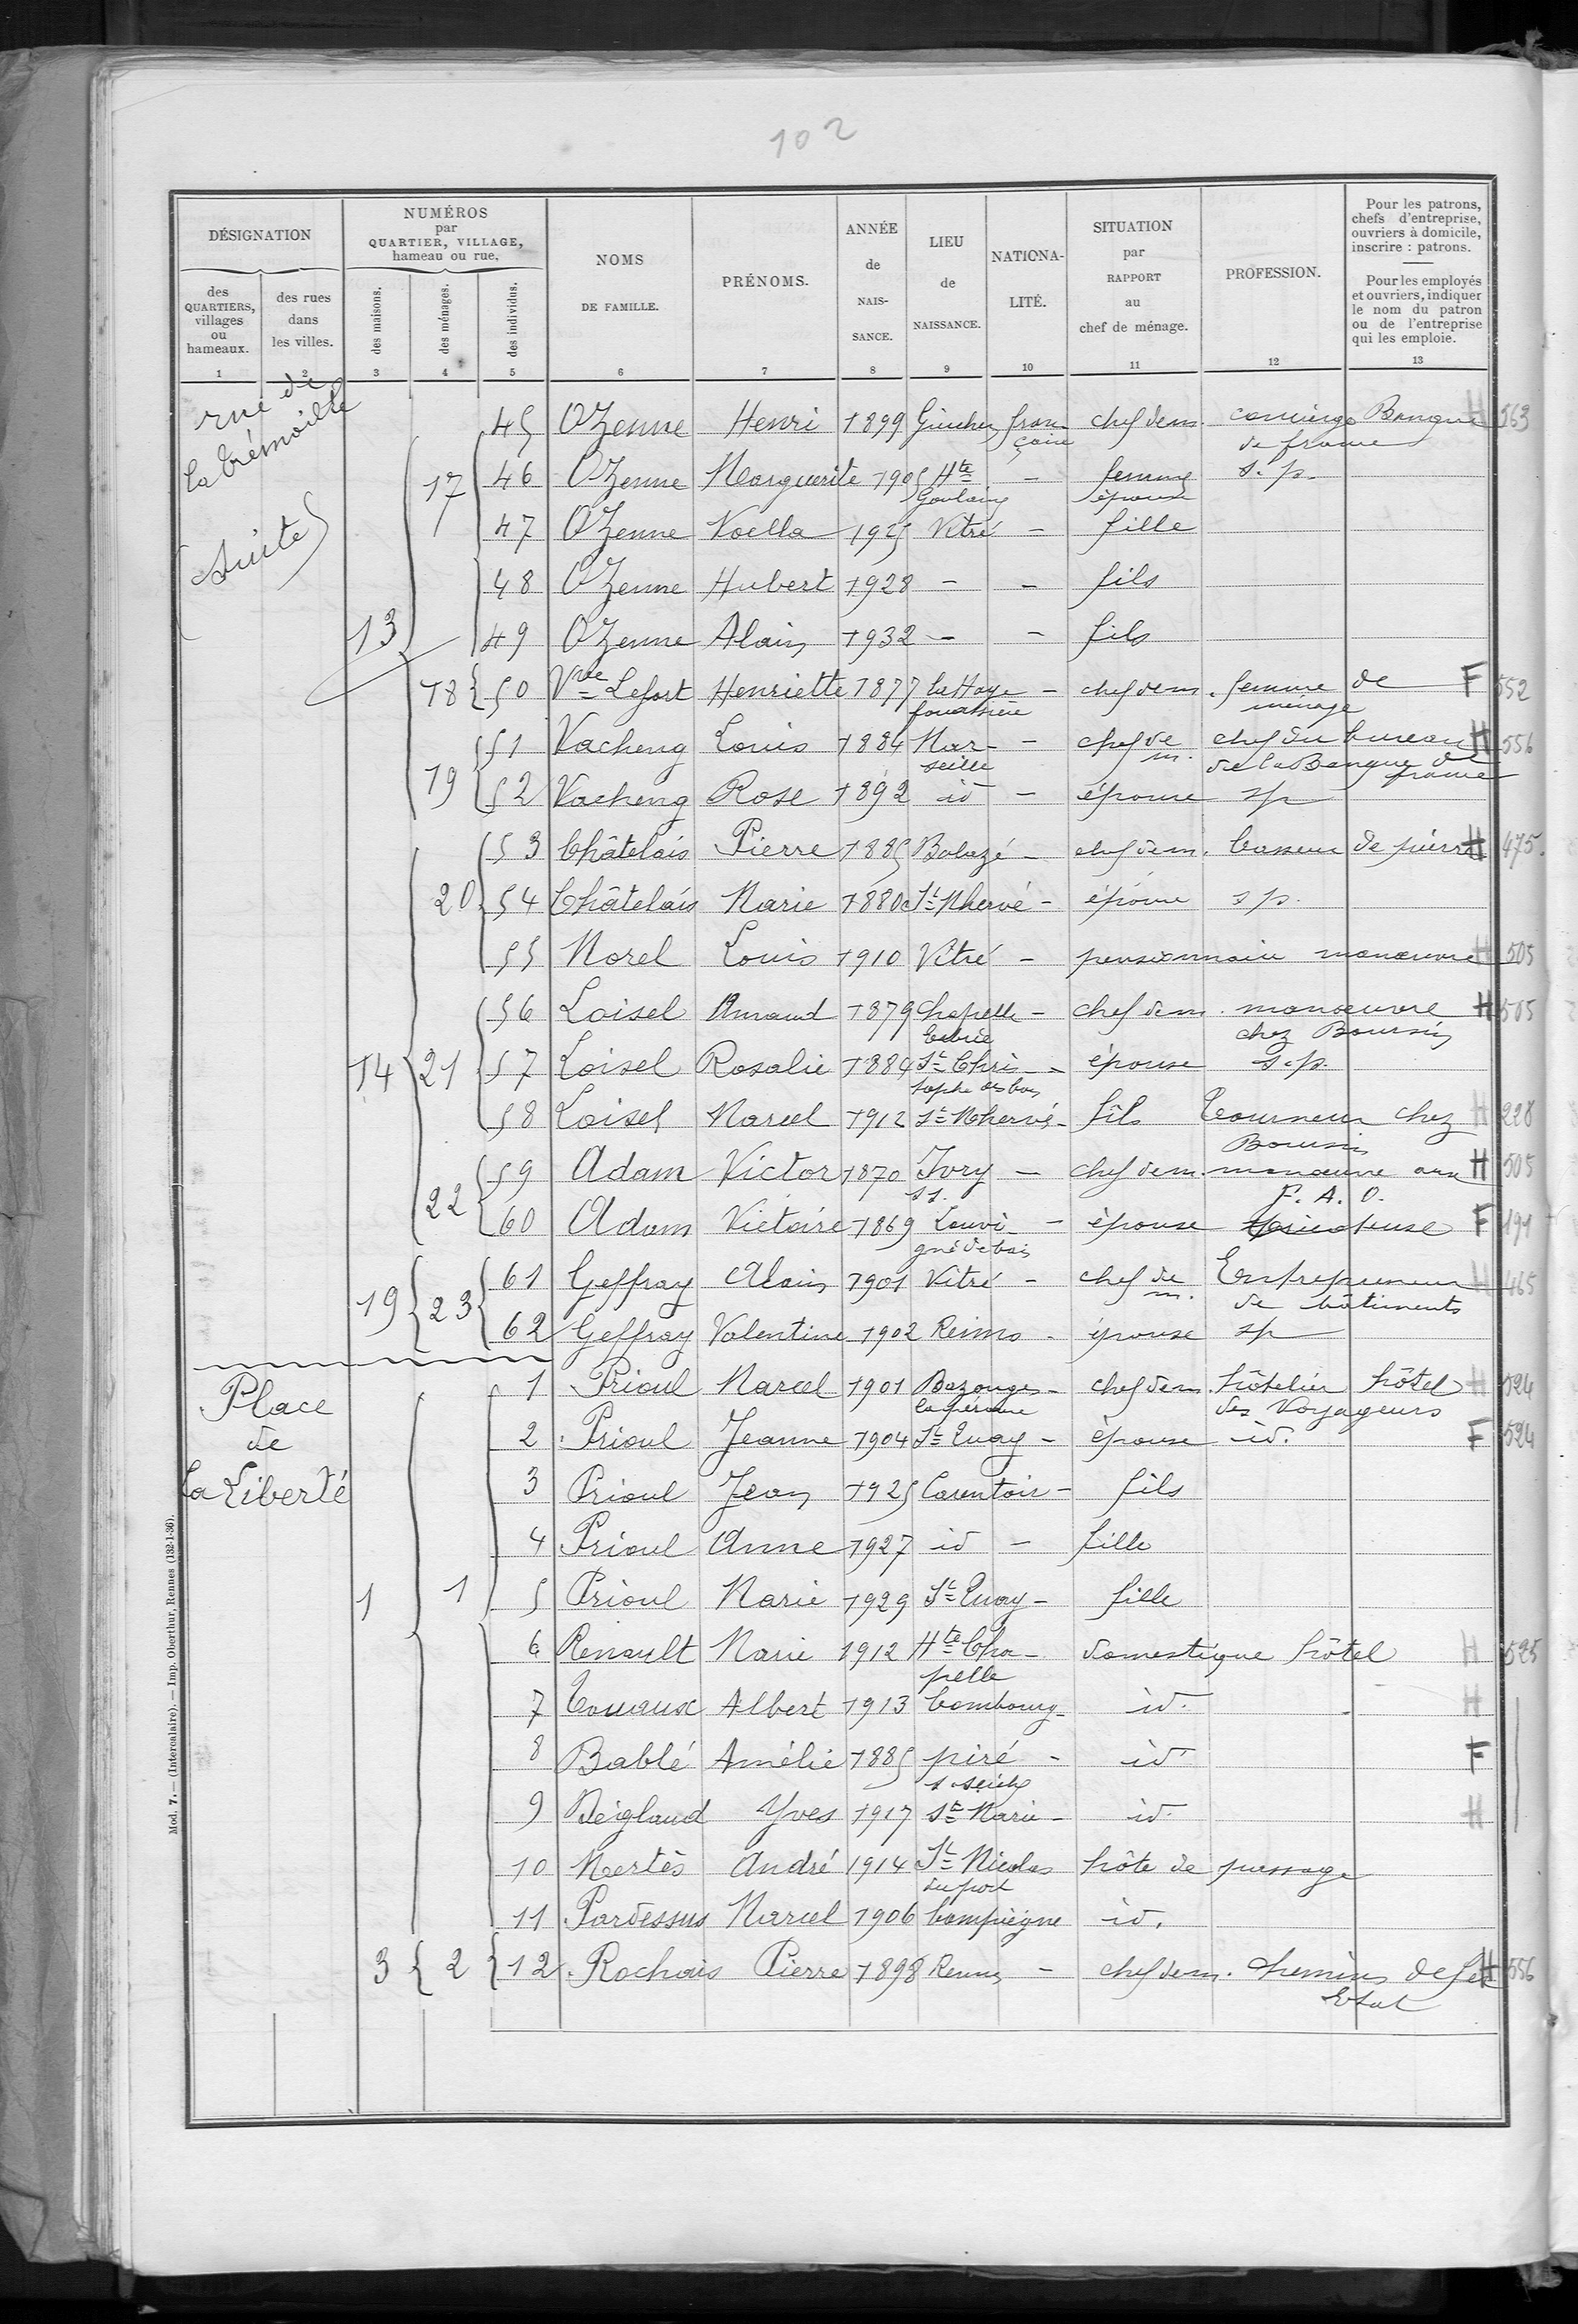 102
DÉSIGNATION
NUMÉROS
par
QUARTIER, VILLAGE,
hameau ou rue.
NOMS
DE FAMILLE.
PRÉNOMS.
ANNÉE
de
NAIS-
SANCE.
LIEU
de
NAISSANCE.
NATIONA-
LITÉ.
SITUATION
par
RAPPORT
au
chef de ménage.
PROFESSION.
Pour les patrons,
chefs d'entreprise,
ouvriers à domicile,
inscrire : patrons.
Pour les employés
et ouvriers, indiquer
le nom du patron
ou de l'entreprise
qui les emploie.
des
QUARTIERS,
villages
ou
hameaux.
des rues
dans
les villes.
des maisons.
des ménages.
des individus.
1 2 3 4 5 6 7 8 9 10 11 12 13
rue de
la trémoille
(suite)
45 OZenne Henri 1899 Guichen fran- chef de m. concierge Banque H 563
çaise de france
17 46 OZenne Marguerite 1905 Hte - femme s.p.
Goulaine épouse
47 OZenne Noella 1925 Vitré - fille
48 OZenne Hubert 1928 - - fils
13 49 OZenne Alain 1932 - - fils
18 50 Vve Lefort Henriette 1877 la Haye - chef de m. femme de F 552
fouassière ménage
51 Vacheng Louis 1884 Mar- - chef de chef du bureau H 556
seille m. de la Banque de france
19 52 Vacheng Rose 1892 id - épouse sp
53 Châtelais Pierre 1885 Balazé - chef de m. Casseur de pierre H 475.
20 54 Châtelais Marie 1880 St Mhervé - épouse s p.
55 Morel Louis 1910 Vitré - pensionnaire manœuvre H 505
56 Loisel Amand 1879 Chapelle - chef de m. manœuvre H 505
Erbrée chez Boursin
14 21 57 Loisel Rosalie 1884 St Chris- - épouse s.p.
tophe des bois
58 Loisel Marcel 1912 St Mhervé - fils Tourneur chez H 228
Boursin
59 Adam Victor 1870 Ivry - chef de m. manœuvre aux H 505
s s. F. A. O.
22 60 Adam Victoire 1869 Louvi- - épouse tricoteuse F 191
gné de bais
61 Geffray Alain 1901 Vitré - chef de Entrepreneur H 465
m. de bâtiments
19 23 62 Geffray Valentine 1902 Reims - épouse sp
Place
de
la Liberté
1 Prioul Marcel 1901 Bazouges - chef de m. hôtelier hôtel H 524
la pérouse des Voyageurs
2 Prioul Jeanne 1904 St Quay - épouse id. F 524
3 Prioul Jean 1925 Carentoir - fils
4 Prioul Anne 1927 id - fille
1 1 5 Prioul Marie 1929 St Quay - fille
6 Renault Marie 1912 Hte Cha- domestique hôtel H 525
pelle
7 Touaux Albert 1913 Combourg - id. H
8 Bablé Amélie 1885 piré - id F
s seiche
9 Beiglaud Yves 1917 Ste Marie - id. H
10 Mertès André 1914 St Nicolas hôte de passage
du port
11 Pardessus Marcel 1906 Compiègne id.
3 2 12 Rochais Pierre 1898 Rennes - chef de m. chemins de fer H 556
Etat
Mod. 7. — (Intercalaire). — Imp. Oberthur, Rennes (132-1-36).